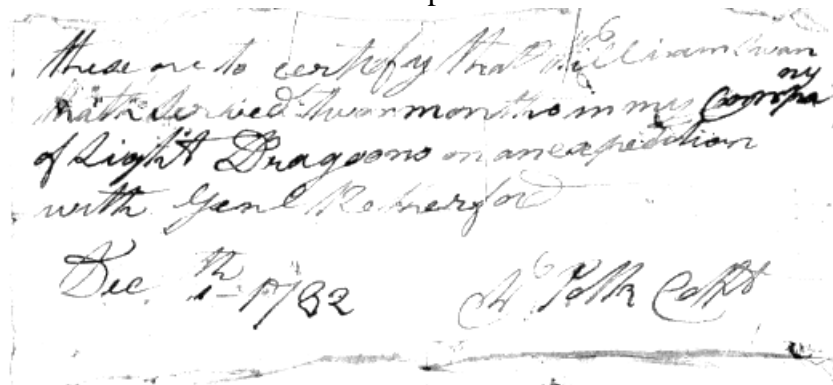 these are to certify that William Swan
hath Served two months in my Compa
ny
of Light Dragoons on an expedition
with Genl Rutherford
Dec th 1 1782 Polk Capt